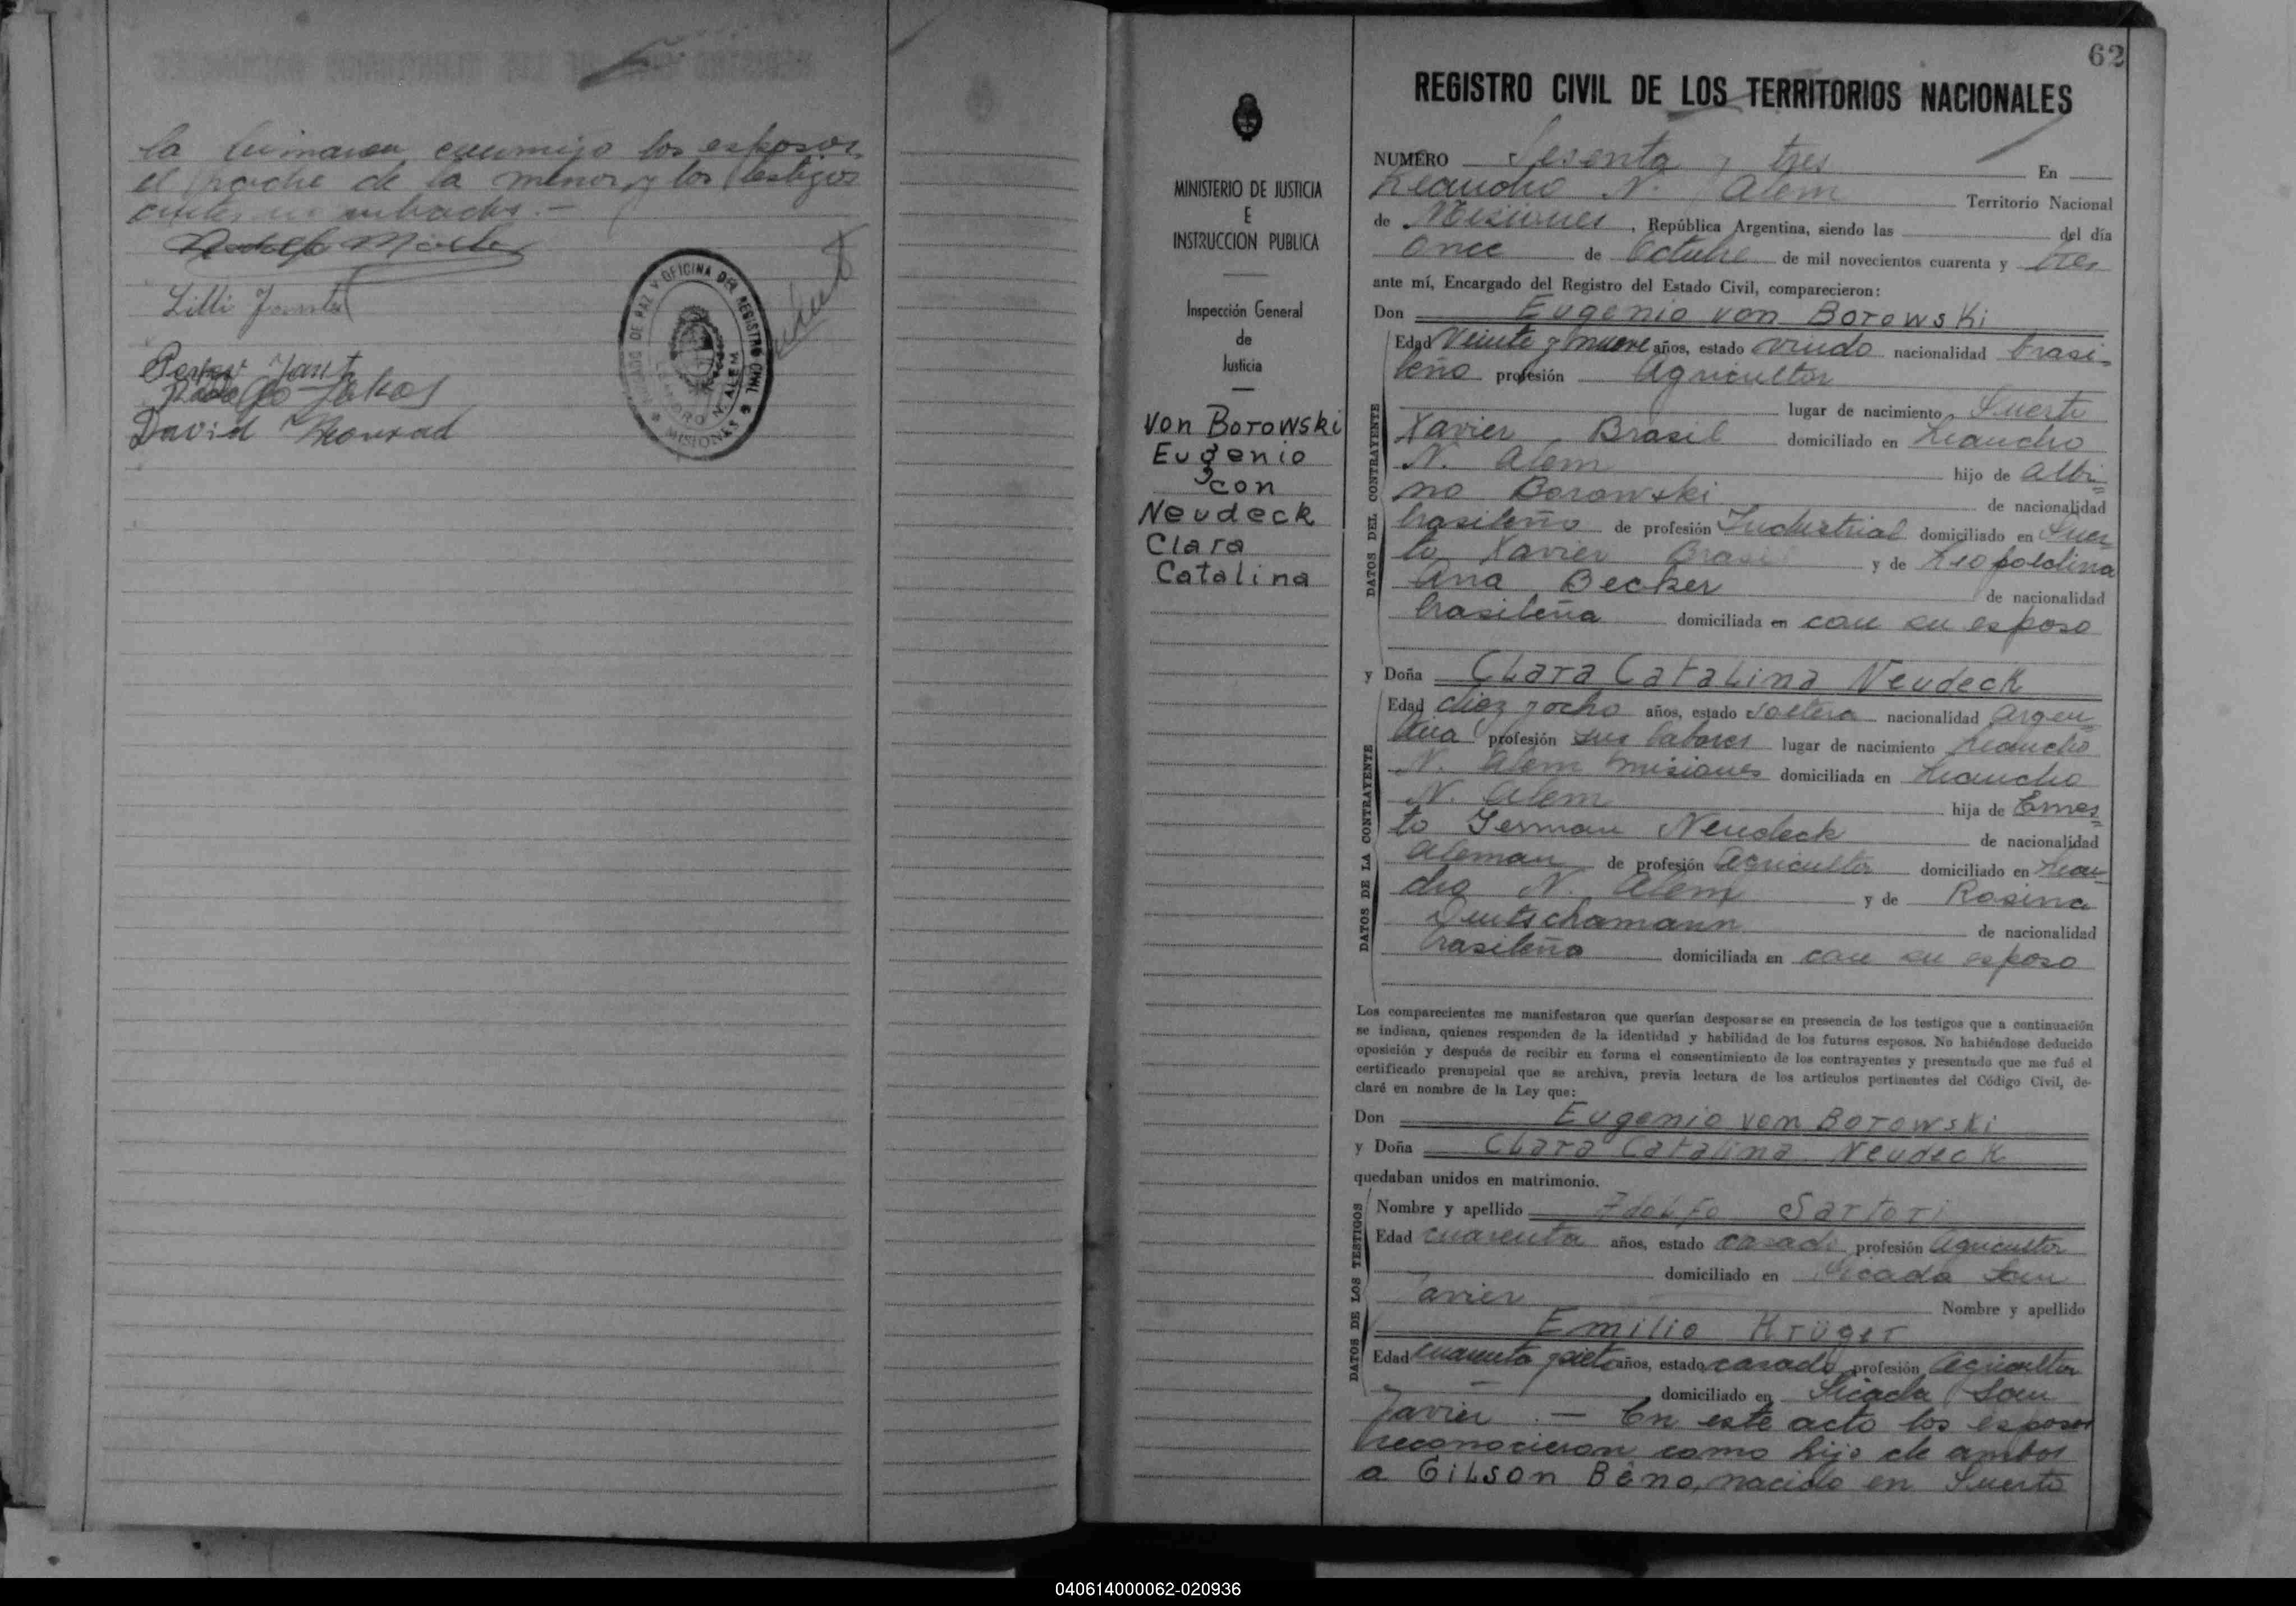 la firmaron conmigo los esposos,
el padre de la menor y los testigos
antes nombrados. —
Lilli
David Konrad
OFICINA DEL REGISTRO CIVIL
LEANDRO N. ALEM
MISIONES
62
REGISTRO CIVIL DE LOS TERRITORIOS NACIONALES
MINISTERIO DE JUSTICIA
E
INSTRUCCION PUBLICA
Inspección General
de
Justicia
Von Borowski
Eugenio
con
Neudeck
Clara
Catalina
NUMERO Sesenta y tres En
Leandro N. Alem Territorio Nacional
de Misiones, República Argentina, siendo las del día
once de Octubre de mil novecientos cuarenta y tres
ante mí, Encargado del Registro del Estado Civil, comparecieron:
Don Eugenio von Borowski
DATOS DEL CONTRAYENTE
Edad Veinte y nueve años, estado viudo nacionalidad brasi-
leño profesión Agricultor
lugar de nacimiento Puerto
Xavier Brasil domiciliado en Leandro
N. Alem hijo de Albi=
no Borowski de nacionalidad
brasileño de profesión Industrial domiciliado en Puer=
to Xavier Brasil y de Leopoldina
Ana Becker de nacionalidad
brasileña domiciliada en con su esposo
y Doña Clara Catalina Neudeck
DATOS DE LA CONTRAYENTE
Edad diez y ocho años, estado soltera nacionalidad argen=
tina profesión sus labores lugar de nacimiento Leandro
N. Alem Misiones domiciliada en Leandro
N. Alem hija de Ernes=
to German Neudeck de nacionalidad
aleman de profesión Agricultor domiciliado en Lean=
dro N. Alem y de Rosina
Deutschamann de nacionalidad
brasileña domiciliada en con su esposo
Los comparecientes me manifestaron que querían desposarse en presencia de los testigos que a continuación
se indican, quienes responden de la identidad y habilidad de los futuros esposos. No habiéndose deducido
oposición y después de recibir en forma el consentimiento de los contrayentes y presentado que me fué el
certificado prenupcial que se archiva, previa lectura de los artículos pertinentes del Código Civil, de-
claré en nombre de la Ley que:
Don Eugenio von Borowski
y Doña Clara Catalina Neudeck
quedaban unidos en matrimonio.
DATOS DE LOS TESTIGOS
Nombre y apellido Adolfo Sartori
Edad cuarenta años, estado casado profesión Agricultor
domiciliado en Picada San
Javier Nombre y apellido
Emilio Krüger
Edad cuarenta y siete años, estado casado profesión Agricultor
domiciliado en Picada San
Javier. — En este acto los esposos
reconocieron como hijo de ambos
a Gilson Bêno, nacido en Puerto
040614000062-020936